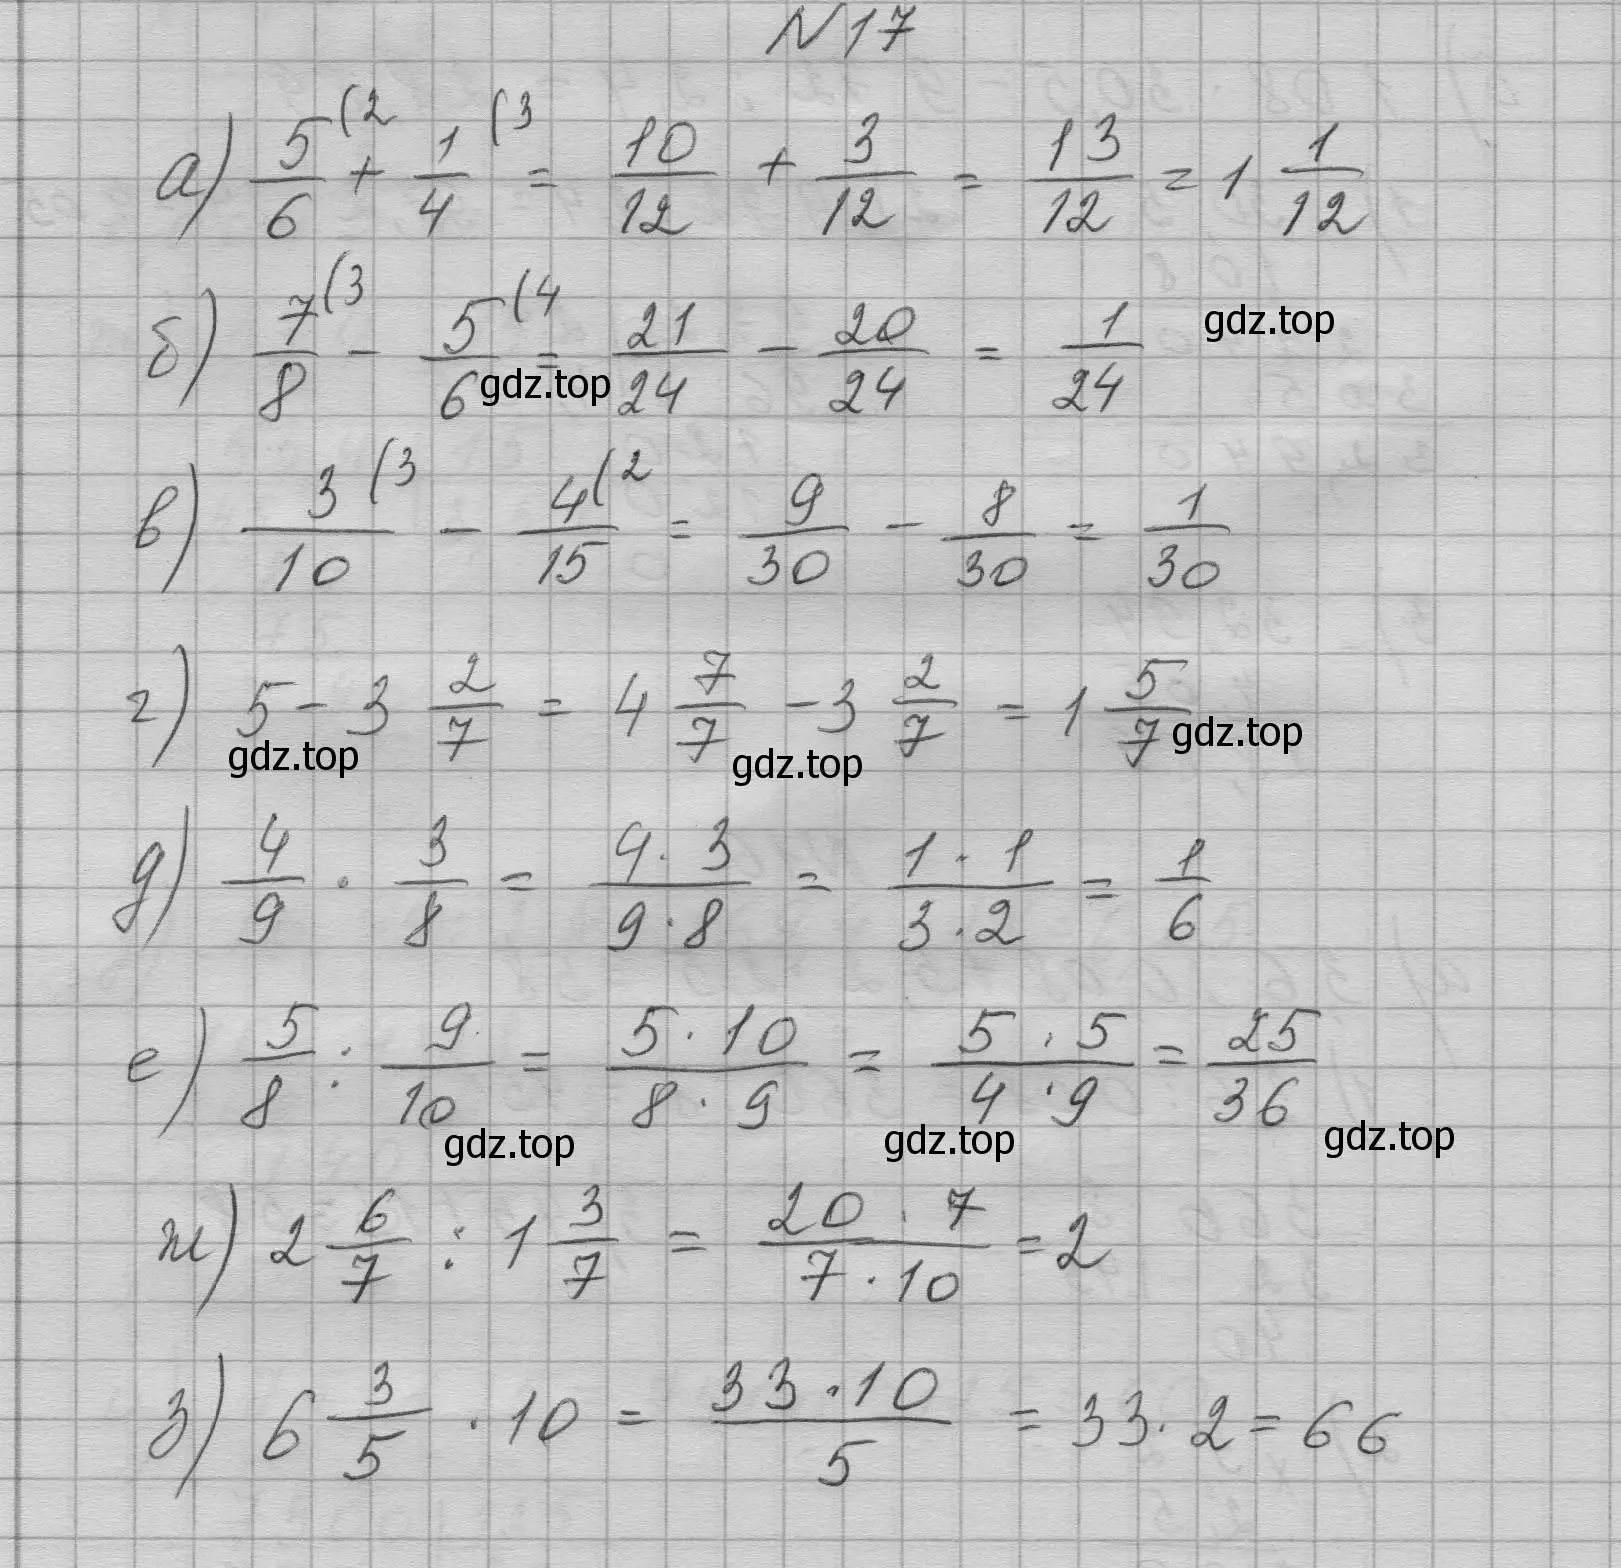 N17
а) 5/6 (2 + 1/4 (3 = 10/12 + 3/12 = 13/12 = 1 1/12
б) 7/8 (3 - 5/6 (4 = 21/24 - 20/24 = 1/24 gdz.top
gdz.top
в) 3/10 (3 - 4/15 (2 = 9/30 - 8/30 = 1/30
г) 5 - 3 2/7 = 4 7/7 - 3 2/7 = 1 5/7
gdz.top gdz.top gdz.top
д) 4/9 · 3/8 = 4·3/9·8 = 1·1/3·2 = 1/6
е) 5/8 : 9/10 = 5·10/8·9 = 5·5/4·9 = 25/36
gdz.top gdz.top gdz.top
ж) 2 6/7 : 1 3/7 = 20·7/7·10 = 2
з) 6 3/5 · 10 = 33·10/5 = 33·2 = 66